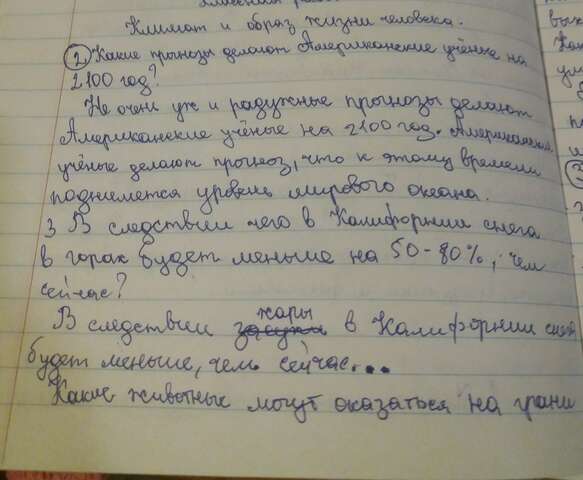 Климат и образ жизни человека.
2 Какие прогнозы делают Американские учёные на
2100 год?
Не очень уж и радужные прогнозы делают
Американские учёные на 2100 год. Американские
учёные делают прогноз, что к этому времени
поднимется уровень мирового океана.
3 В следствии чего в Калифорнии снега
в горах будет меньше на 50-80%, чем
сейчас?
жары
В следствии засухи в Калифорнии снега
будет меньше, чем сейчас...
Какие животные могут оказаться на грани